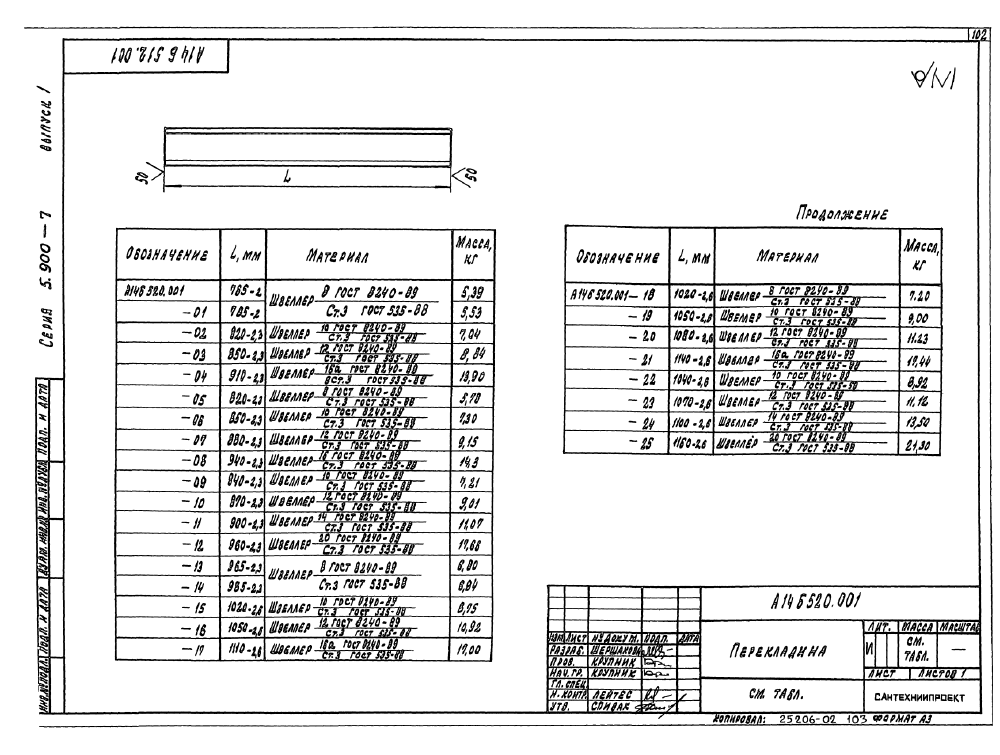 102
А14Б 512.001
Серия 5.900-7 выпуск 1
50
L
50
Продолжение
Обозначение L, мм Материал Масса, кг
А14Б520.001 765-2 Швеллер 8 ГОСТ 8240-89 5,39
-01 785-2 Ст.3 ГОСТ 535-88 5,53
-02 820-2,3 Швеллер 10 ГОСТ 8240-89 Ст.3 ГОСТ 535-88 7,04
-03 850-2,3 Швеллер 12 ГОСТ 8240-89 Ст.3 ГОСТ 535-88 8,84
-04 910-2,3 Швеллер 16а ГОСТ 8240-89 Вст.3 ГОСТ 535-88 13,90
-05 820-2,3 Швеллер 8 ГОСТ 8240-89 Ст.3 ГОСТ 535-88 5,78
-06 850-2,3 Швеллер 10 ГОСТ 8240-89 Ст.3 ГОСТ 535-88 7,30
-07 880-2,3 Швеллер 12 ГОСТ 8240-89 Ст.3 ГОСТ 535-88 9,15
-08 940-2,3 Швеллер 16 ГОСТ 8240-89 Ст.3 ГОСТ 535-88 14,3
-09 840-2,3 Швеллер 10 ГОСТ 8240-89 Ст.3 ГОСТ 535-88 7,21
-10 870-2,3 Швеллер 12 ГОСТ 8240-89 Ст.3 ГОСТ 535-88 9,01
-11 900-2,3 Швеллер 14 ГОСТ 8240-89 Ст.3 ГОСТ 535-88 11,07
-12 960-2,3 Швеллер 20 ГОСТ 8240-89 Ст.3 ГОСТ 535-88 17,66
-13 965-2,3 Швеллер 8 ГОСТ 8240-89 6,80
-14 985-2,3 Ст.3 ГОСТ 535-88 6,94
-15 1020-2,6 Швеллер 10 ГОСТ 8240-89 Ст.3 ГОСТ 535-88 8,75
-16 1050-2,6 Швеллер 12 ГОСТ 8240-89 Ст.3 ГОСТ 535-88 10,92
-17 1110-2,6 Швеллер 16а ГОСТ 8240-89 Ст.3 ГОСТ 535-88 17,00
Обозначение L, мм Материал Масса, кг
А14Б520.001-18 1020-2,6 Швеллер 8 ГОСТ 8240-89 Ст.3 ГОСТ 535-88 7,20
-19 1050-2,6 Швеллер 10 ГОСТ 8240-89 Ст.3 ГОСТ 535-88 9,00
-20 1080-2,6 Швеллер 12 ГОСТ 8240-89 Ст.3 ГОСТ 535-88 11,23
-21 1140-2,6 Швеллер 16а ГОСТ 8240-89 Ст.3 ГОСТ 535-88 17,44
-22 1040-2,6 Швеллер 10 ГОСТ 8240-89 Ст.3 ГОСТ 535-88 8,92
-23 1070-2,6 Швеллер 12 ГОСТ 8240-89 Ст.3 ГОСТ 535-88 11,12
-24 1100-2,6 Швеллер 14 ГОСТ 8240-89 Ст.3 ГОСТ 535-88 13,50
-25 1160-2,6 Швеллер 20 ГОСТ 8240-89 Ст.3 ГОСТ 535-88 21,30
Инв.№подл. Подп. и дата Взам. инв.№ Инв.№дубл. Подп. и дата
А14Б520.001
Изм. Лист № докум. Подп. Дата
Разраб. Шершакова
Пров. Крупник
Нач.гр. Крупник
Гл. спец.
Н. контр. Лейтес
Утв. Спивак
Перекладина
Лит. Масса Масштаб
И см. табл. —
Лист Листов 1
см. табл.
САНТЕХНИИПРОЕКТ
Копировал: 25206-02 103 Формат А3